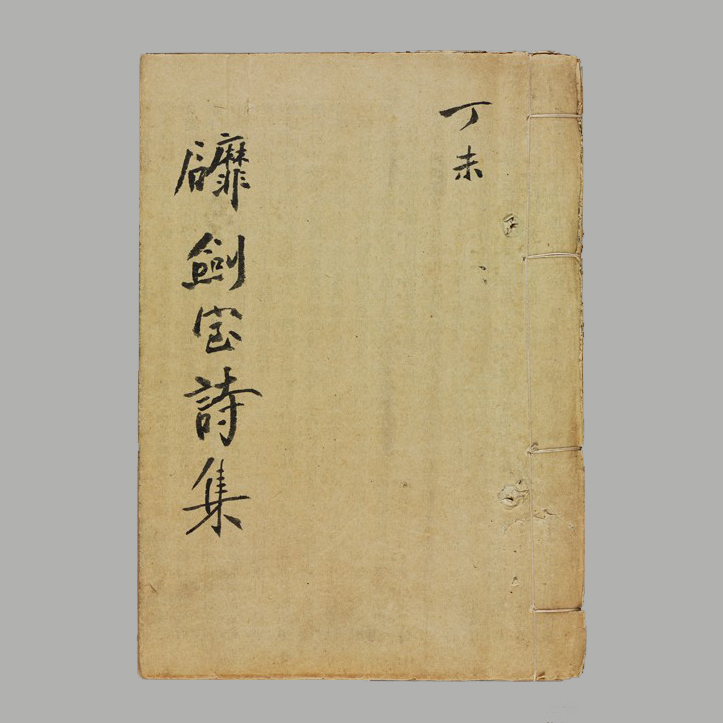 丁未
䃺劍室詩集